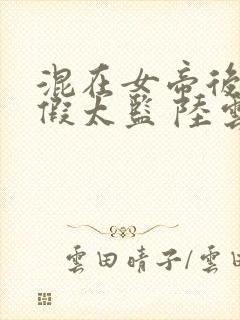 混在女帝後
假太監 陸雲
雲田晴子/雲田